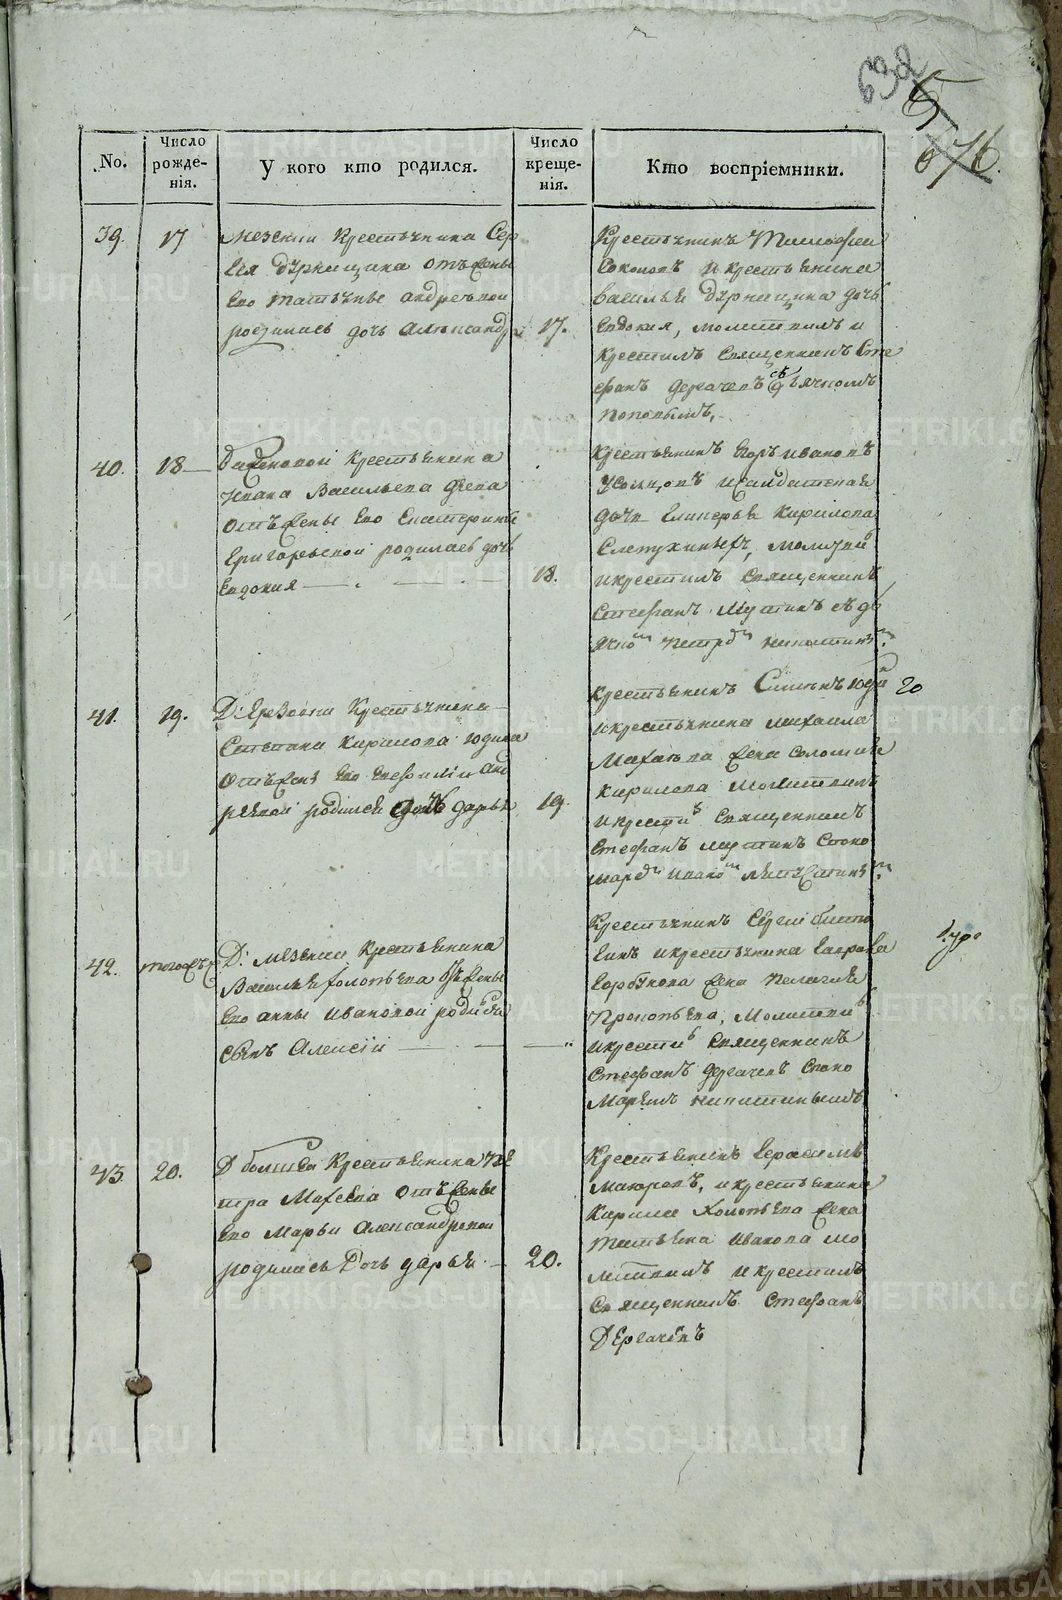 632
5
676.
No.
Число рожде-нія.
У кого кто родился.
Число креще-нія.
Кто воспріемники.
39.
17
Мезении Крестьянина Сер
гея Дурницина отъ жены
Его Татьяны Андреевой
родилась дочь Александра
17.
Крестьянинъ Тимофеи
Соколовъ и крестьянина
Василья Дурницина дочь
Евдокия, молитвилъ и
крестилъ Священникъ Сте
фанъ Дергачевъ съ дьячкомъ
Поповымъ.
40.
18
Крестьянина
Ивана Васильева
отъ жены Его Екатерины
Григорьевой родилась дочь
Евдокия
18.
Крестьянинъ Егоръ Ивановъ
Усольцовъ и Салдатская
дочь Гликерья Кирилова
Слепухиныхъ, молитви
и крестилъ Священникъ
Стефанъ Мутинъ съ дь
ячкомъ Петромъ Никитинымъ
41.
19.
Д: Крестьянина
Степана Кирилова Юдина
отъ жены Его Ксефилии Анд
реевой родилися дочь Дарья
19.
Крестьянинъ Симонъ Юдин
20
и крестьянина Михаила
Махаюва жена Соломия
Кирилова Молитвилъ
и крести Священникъ
Стефанъ Мутинъ Споно
маремъ Иваномъ
42.
тогожъ
Д: Мезении Крестьянина
Василья Холопьева отъ жены
Его Анны Ивановой родился
сынъ Алексей
Крестьянинъ Сергей
и крестьянина Гаврила
Коробкова жена Пелагия
Прокопьева, Молитви
и крести Священникъ
Стефанъ Дергачевъ Споно
маремъ Никитинымъ
43.
20.
Д Крестьянина Пе
тра Махнева отъ жены
Его Марьи Александровой
родилась Дочь Дарья
20.
Крестьянинъ Герасимъ
Маюровъ, и крестьянина
Кирила Холопьева жена
Татьяна Иванова мо
литвилъ и крестилъ
Священникъ Стефанъ
Дергачевъ
METRIKI.GASO-URAL.RU